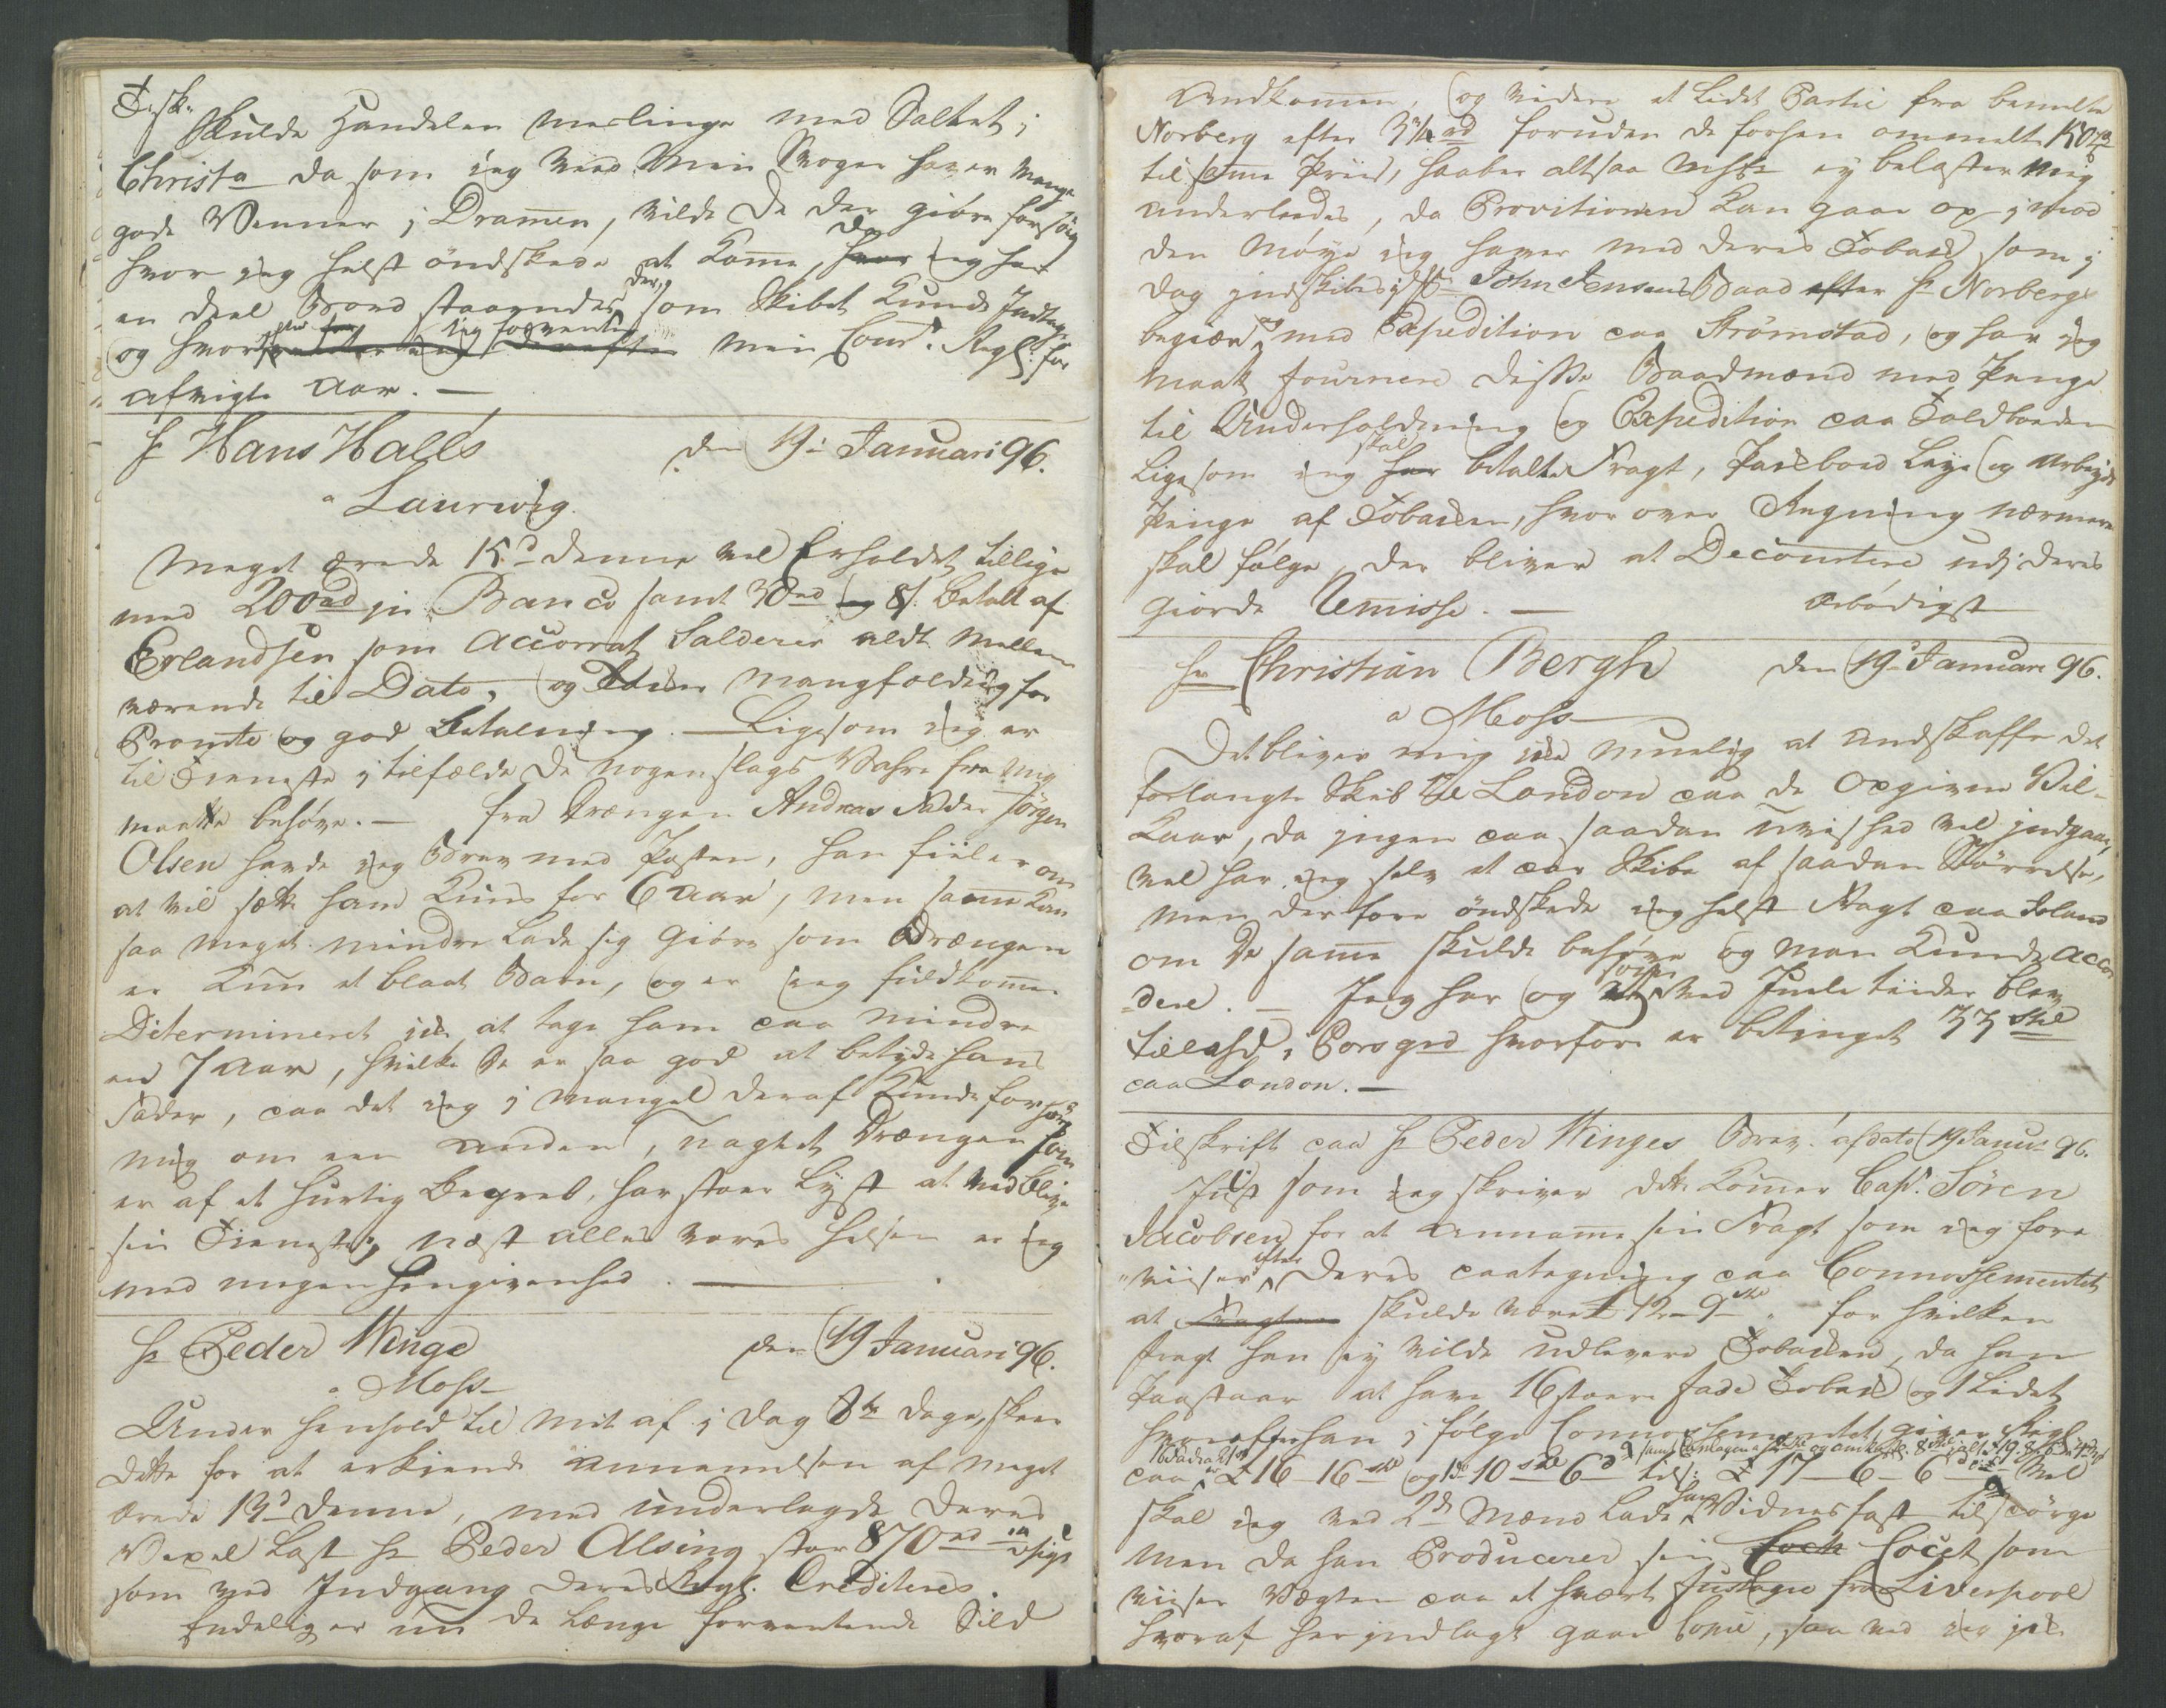 T. sk.
Skulde Handelen mislinge med Saltet i
Christa da som jeg ved Min Svoger haver mange
gode Venner i Dramen, vilde De der giöre forsög
hvor jeg helst öndskede at Kome, da jeg har
en deel Bord staaendes der, som Skibet Kunde Indtage
og hvor jeg forventer min Cour. Regl: for
afvigte Aar. —
Hr Hans Halls den 19de Januari 96.
a Laurvig.
Meget ærede 15d denne vel Erholdet tillige
med 200rd in Banco samt 30rd og 8s. betalt af
Erlandsen som accorrat Salderer alt mellem
værende til Dato, og takker mangfoldig for
Promte og god Betalning. — Ligesom jeg er
til Tieneste i tilfælde De nogen slags Vahre fra mig
maatte behöve. — fra Drængen Andreas Fader Jörgen
Olsen havde jeg Brev med Posten, han fiiler om
at vil sætte ham Kuns for 6 Aar, men samme Kan
saa meget mindre Lade sig giöre som Drængen
er Kun et blaat Barn, og er jeg fuldkommen
Determineret ike at tage ham paa mindre
end 7 Aar, hvilke De er saa god at betyde hans
Fader, paa det jeg i mangel deraf Kunde forhöre
mig om een anden, uagtet Drængen som
er af et hurtig Begreb, har stoer Lyst at vedblive
sin Tieneste, næst alles vores hilsen er jeg
med megen hengivenhed. —
Hr Peder Winge den 19 Januari 96.
a Moss
Under henhold til mit af i Dag 8te Dage, skeer
dette for at erkiende annamelsen af meget
ærede 13d denne, med underlagde Deres
Vexel Last Hr Peder Alsing stor 870rd a vista
som ved Indgang Deres Regl. Crediteres.
Endelig er nu De længe forventende Sild
Andkommen, og videre et Lidet Partie fra bemelte
Norberg efter 3 1/4rd foruden de forhen ommelte 150
til samme Priis, haaber altsaa ey belaster mig
anderleedes, da Provitionen Kan gaae op i mod
den Möye jeg haver med Deres Toback som i
Dag indskibes i Hr John Jensens Baad efter Hr Norbergs
begiær og med Expedition paa Strömstad, og har jeg
maatt fournere disse Baadmænd med Penge
til Underholdning og Expedition paa Toldboeden
Ligesom jeg skal betalte Fragt, Pakboed Leye og Arbeyds
Penge af Tobakken, hvor over Regning nærmere
skal fölge, der bliver at Decourtere udi Deres
giorde Remisse. — Ærbödigst
Hr Christian Bergh den 19de Januari 96.
a Moss
Det bliver mig ike mueligt at andskaffe det
forlangte Skib til London paa de Opgivne Vil-
Kaar, da ingen paa saadan uvished vel indgaar,
vel har jeg selv et par Skibe af saadan Störrelse,
men derfore öndskede jeg helst Fragt paa Irland
om De samme skulde behöve og man Kunde accor
dere. — Jeg har og ved Juele tiider blev
tilasd, Porsgrd hvorfore er betinget 33 skl
paa London. —
Tilskrift paa Hr Peder Winges Brev. af dato 19 Januar 96.
Just som jeg skriver dette Kommer Capt. Sören
Jacobsen for at annamme sin Fragt som jeg fore
viiser efter Deres paategning paa Connossementet
at skulde være £ 12 – 9 sh. for hvilken
fragt han ey vilde udlevere Tobakken, da han
Paastaar at have 16 store fade Tobak og 1 Lidet
hvorefter han i fölge Connossementet giver
paa £ 16 – 16 sh og 10 sh 6 d tils: £ 17 – 6 – 6 d Vel
skal jeg ved 2de Mænd Lade ham Vidnesfast tilspörge
men da han Producerer sin Cocet som
viiser Vægten paa et hvært fustage fra Liverpool
hvoraf her indlagt gaar Copie, saa ved jeg ike